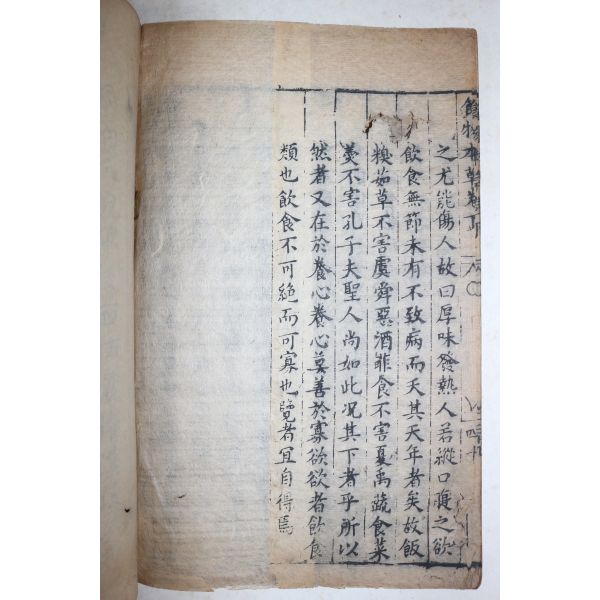 食物本草卷下
之尤能傷人故曰厚味發熱人若縱口腹之欲
飲食無節未有不致病而夭其天年者矣故飯
糗茹草不害虞舜惡酒菲食不害夏禹蔬食菜
羹不害孔子夫聖人尚如此况其下者乎所以
然者又在於養心養心莫善於寡欲欲者飲食
類也飲食不可絶而可寡也覽者宜自得焉